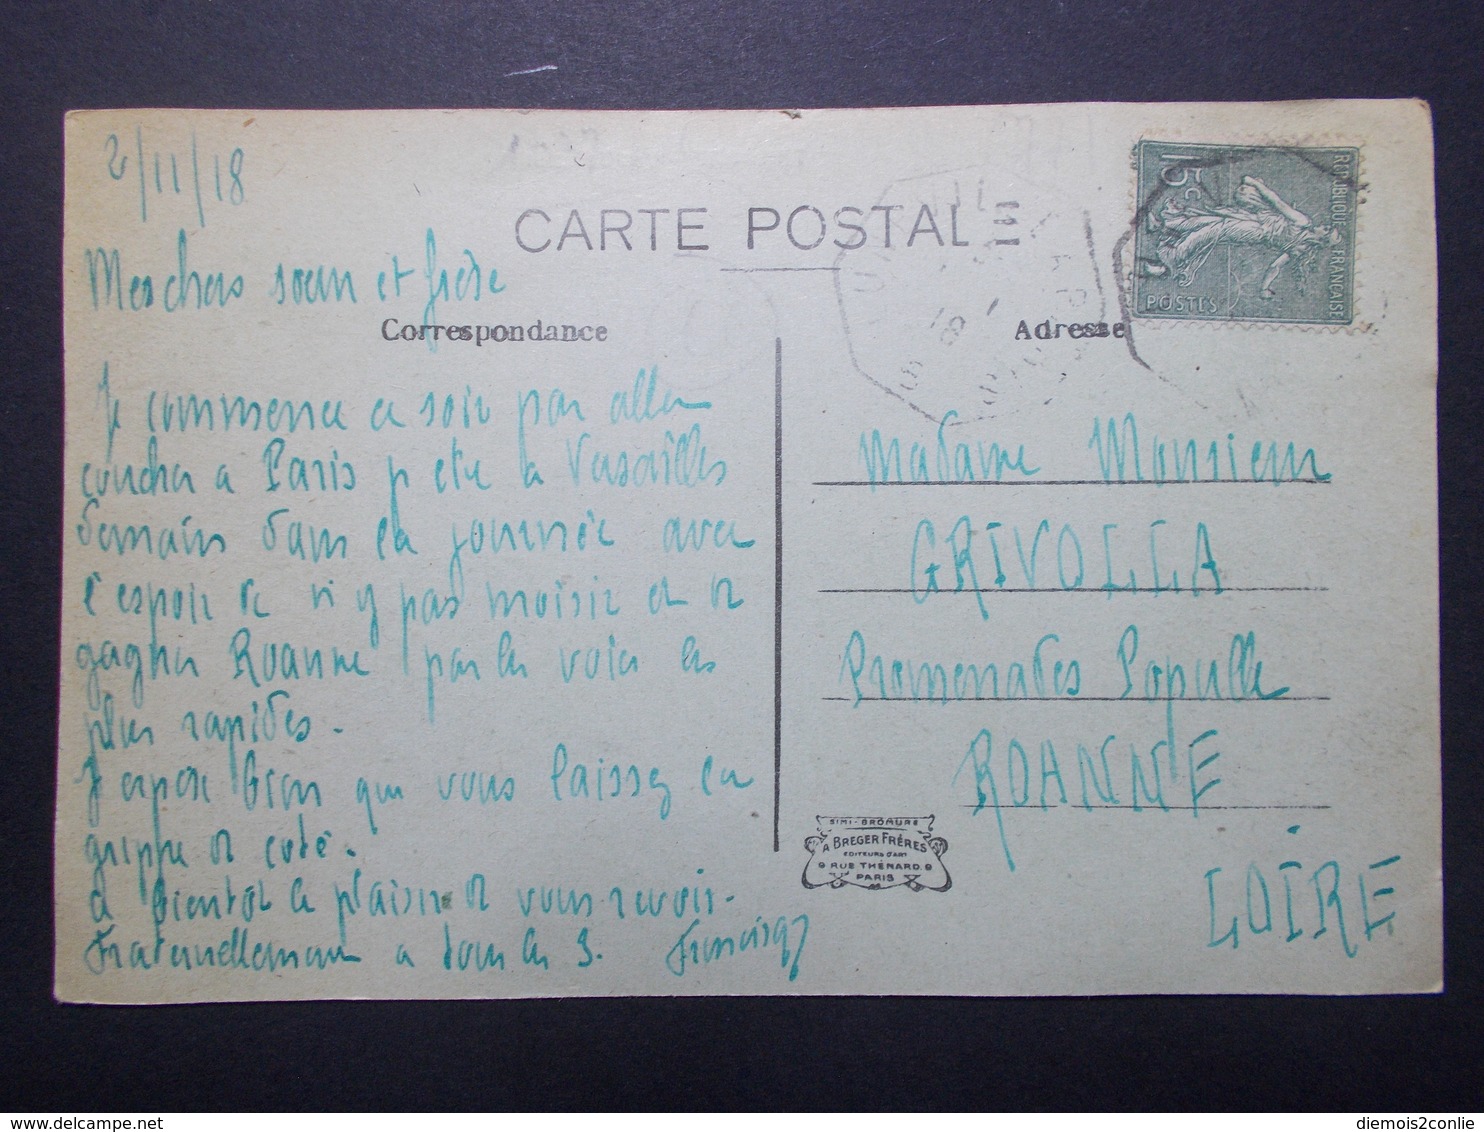 2/11/18
CARTE POSTALE
Mes chers sœur et frère
Correspondance
Je commence ce soir par aller
coucher a Paris p être a Versailles
demain dans la journée avec
l'espoir de n'y pas moisir et de
gagner Roanne par les voies les
plus rapides.
J'espère bien que vous laissez la
grippe de coté.
a bientôt le plaisir de vous revoir.
Fraternellement a tous les 3.
Adresse
15c
REPUBLIQUE FRANÇAISE
POSTES
18
Madame Monsieur
GRIVOLLA
Promenades Populle
ROANNE
LOIRE
SIMI-BROMURE
A BREGER FRÈRES
EDITEURS D'ART
9 RUE THÉNARD 9
PARIS
diemois2conlie